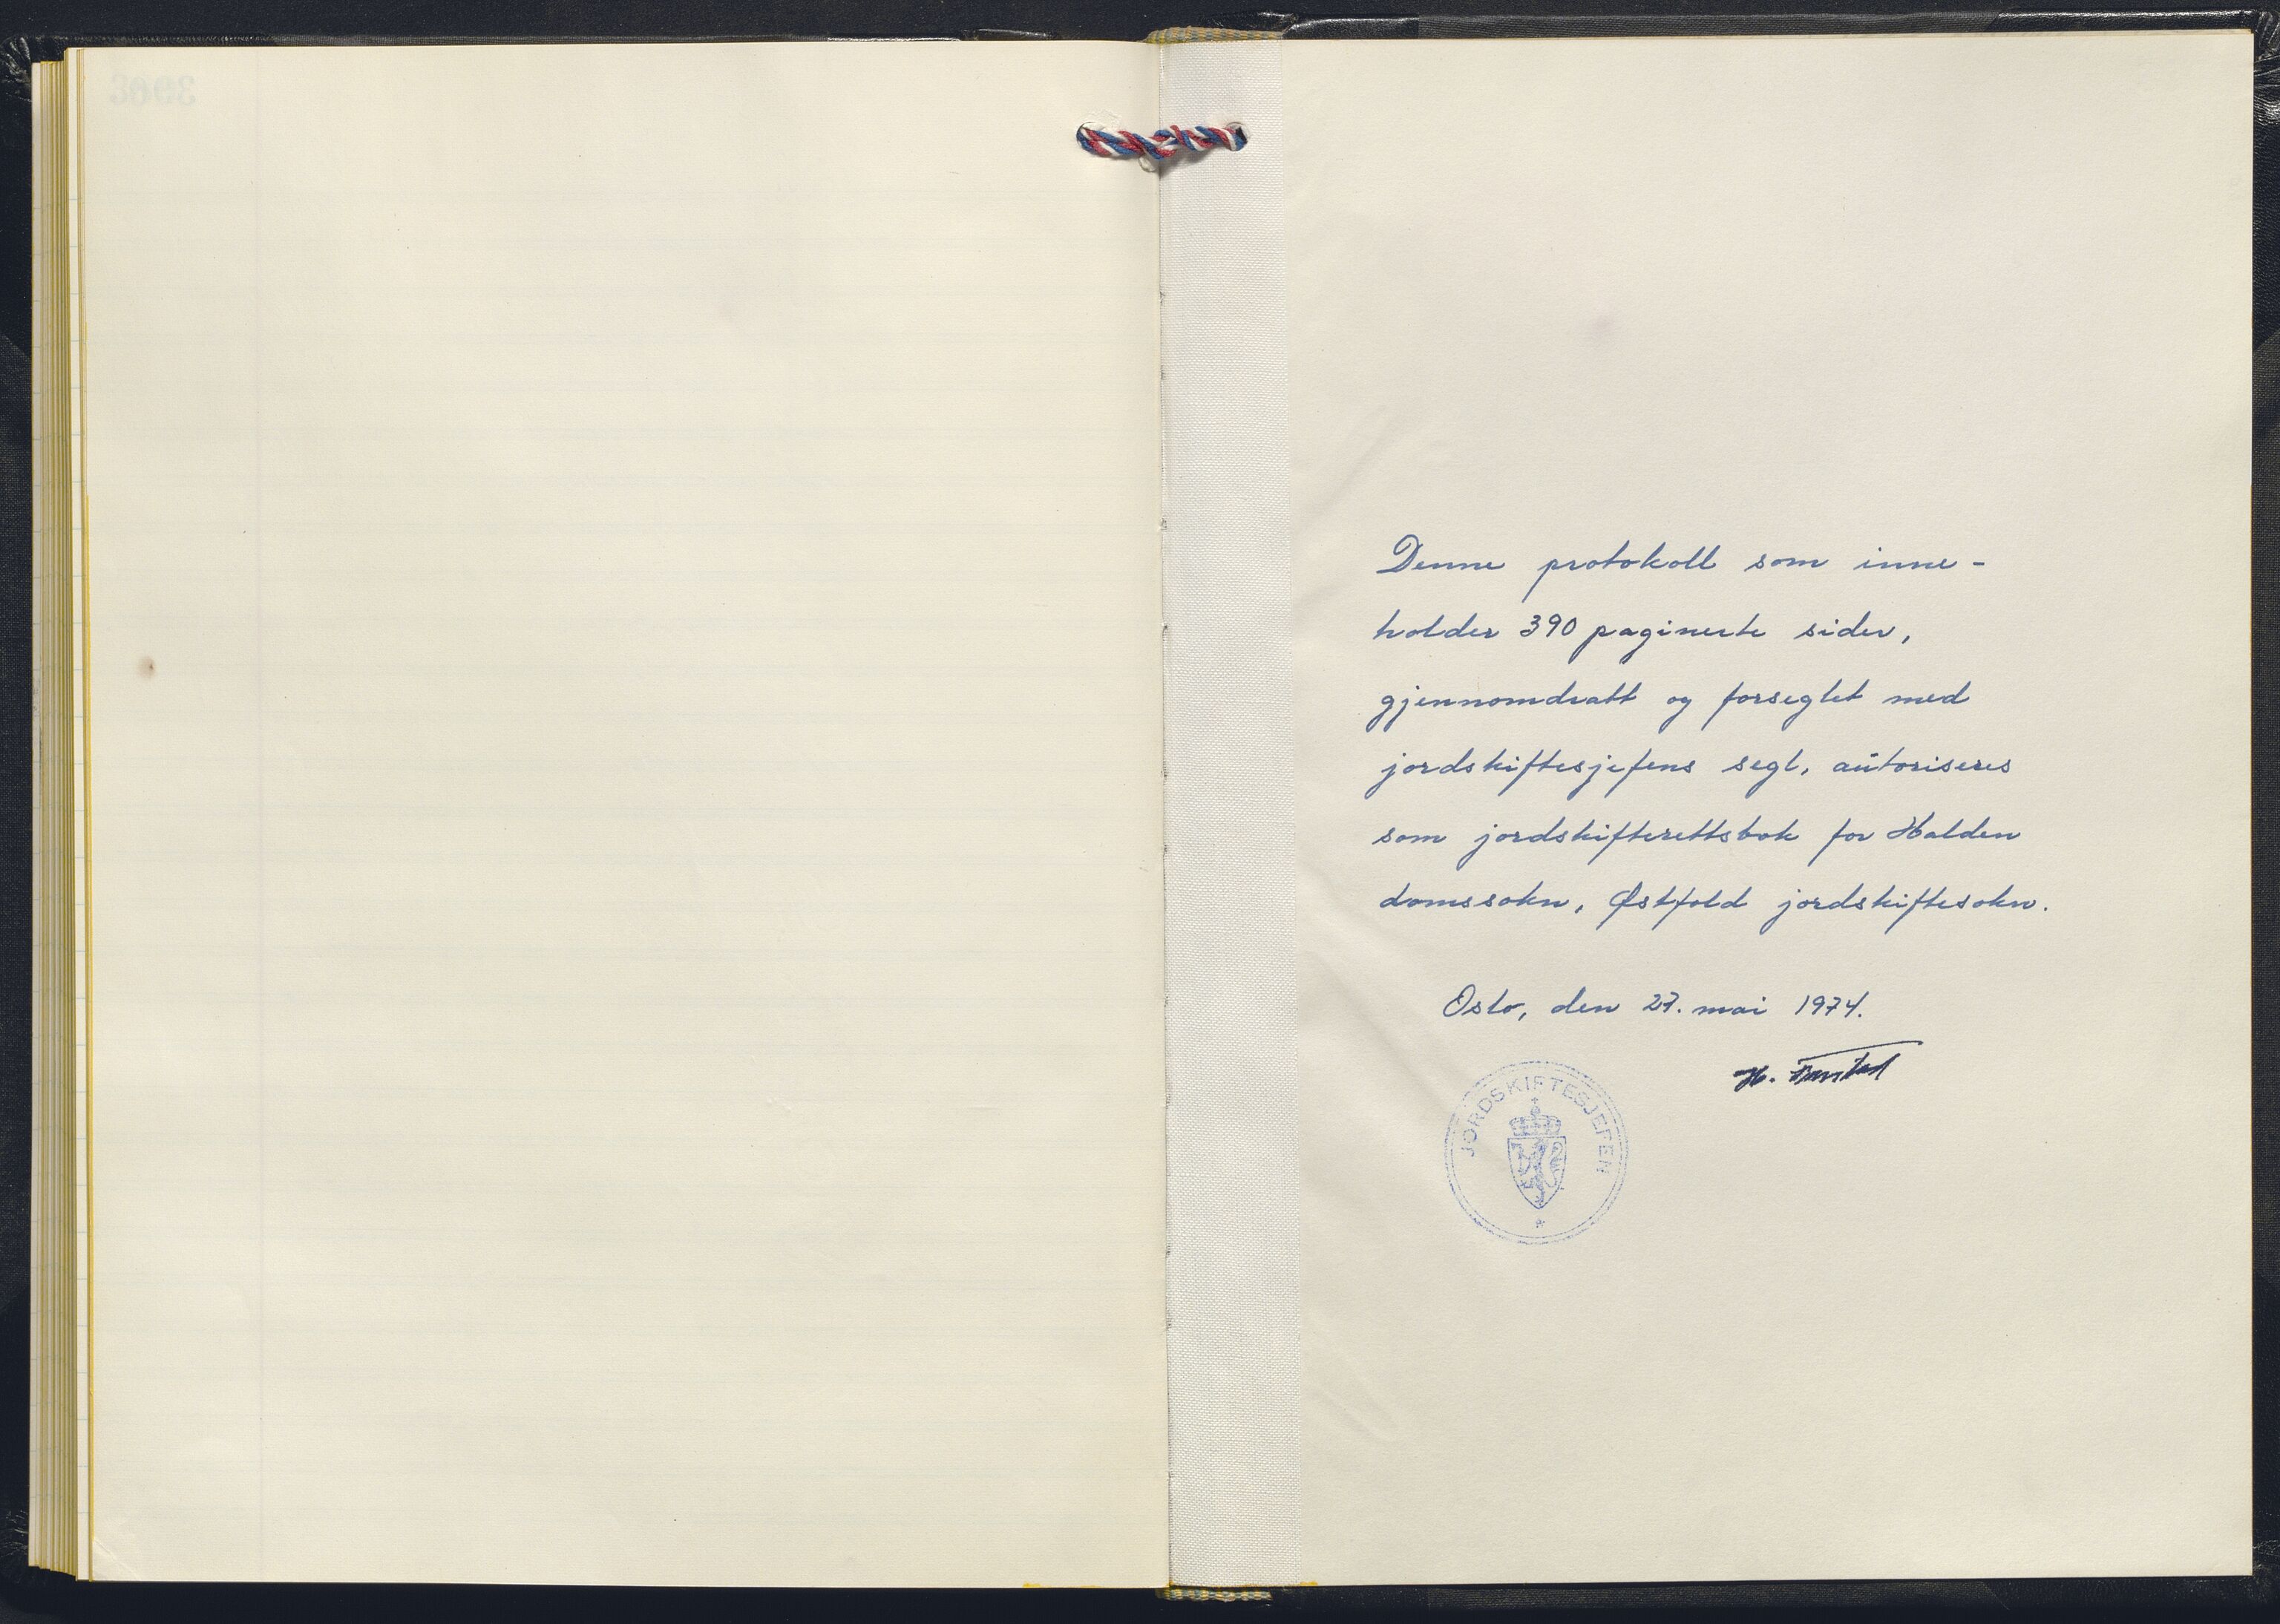 Denne protokoll som inne-
holder 390 paginerte sider,
gjennomdratt og forseglet med
jordskiftesjefens segl, autoriseres
som jordskifterettsbok for Halden
domssokn, Østfold jordskiftesokn.
Oslo, den 27. mai 1974.
H.
JORDSKIFTESJEFEN